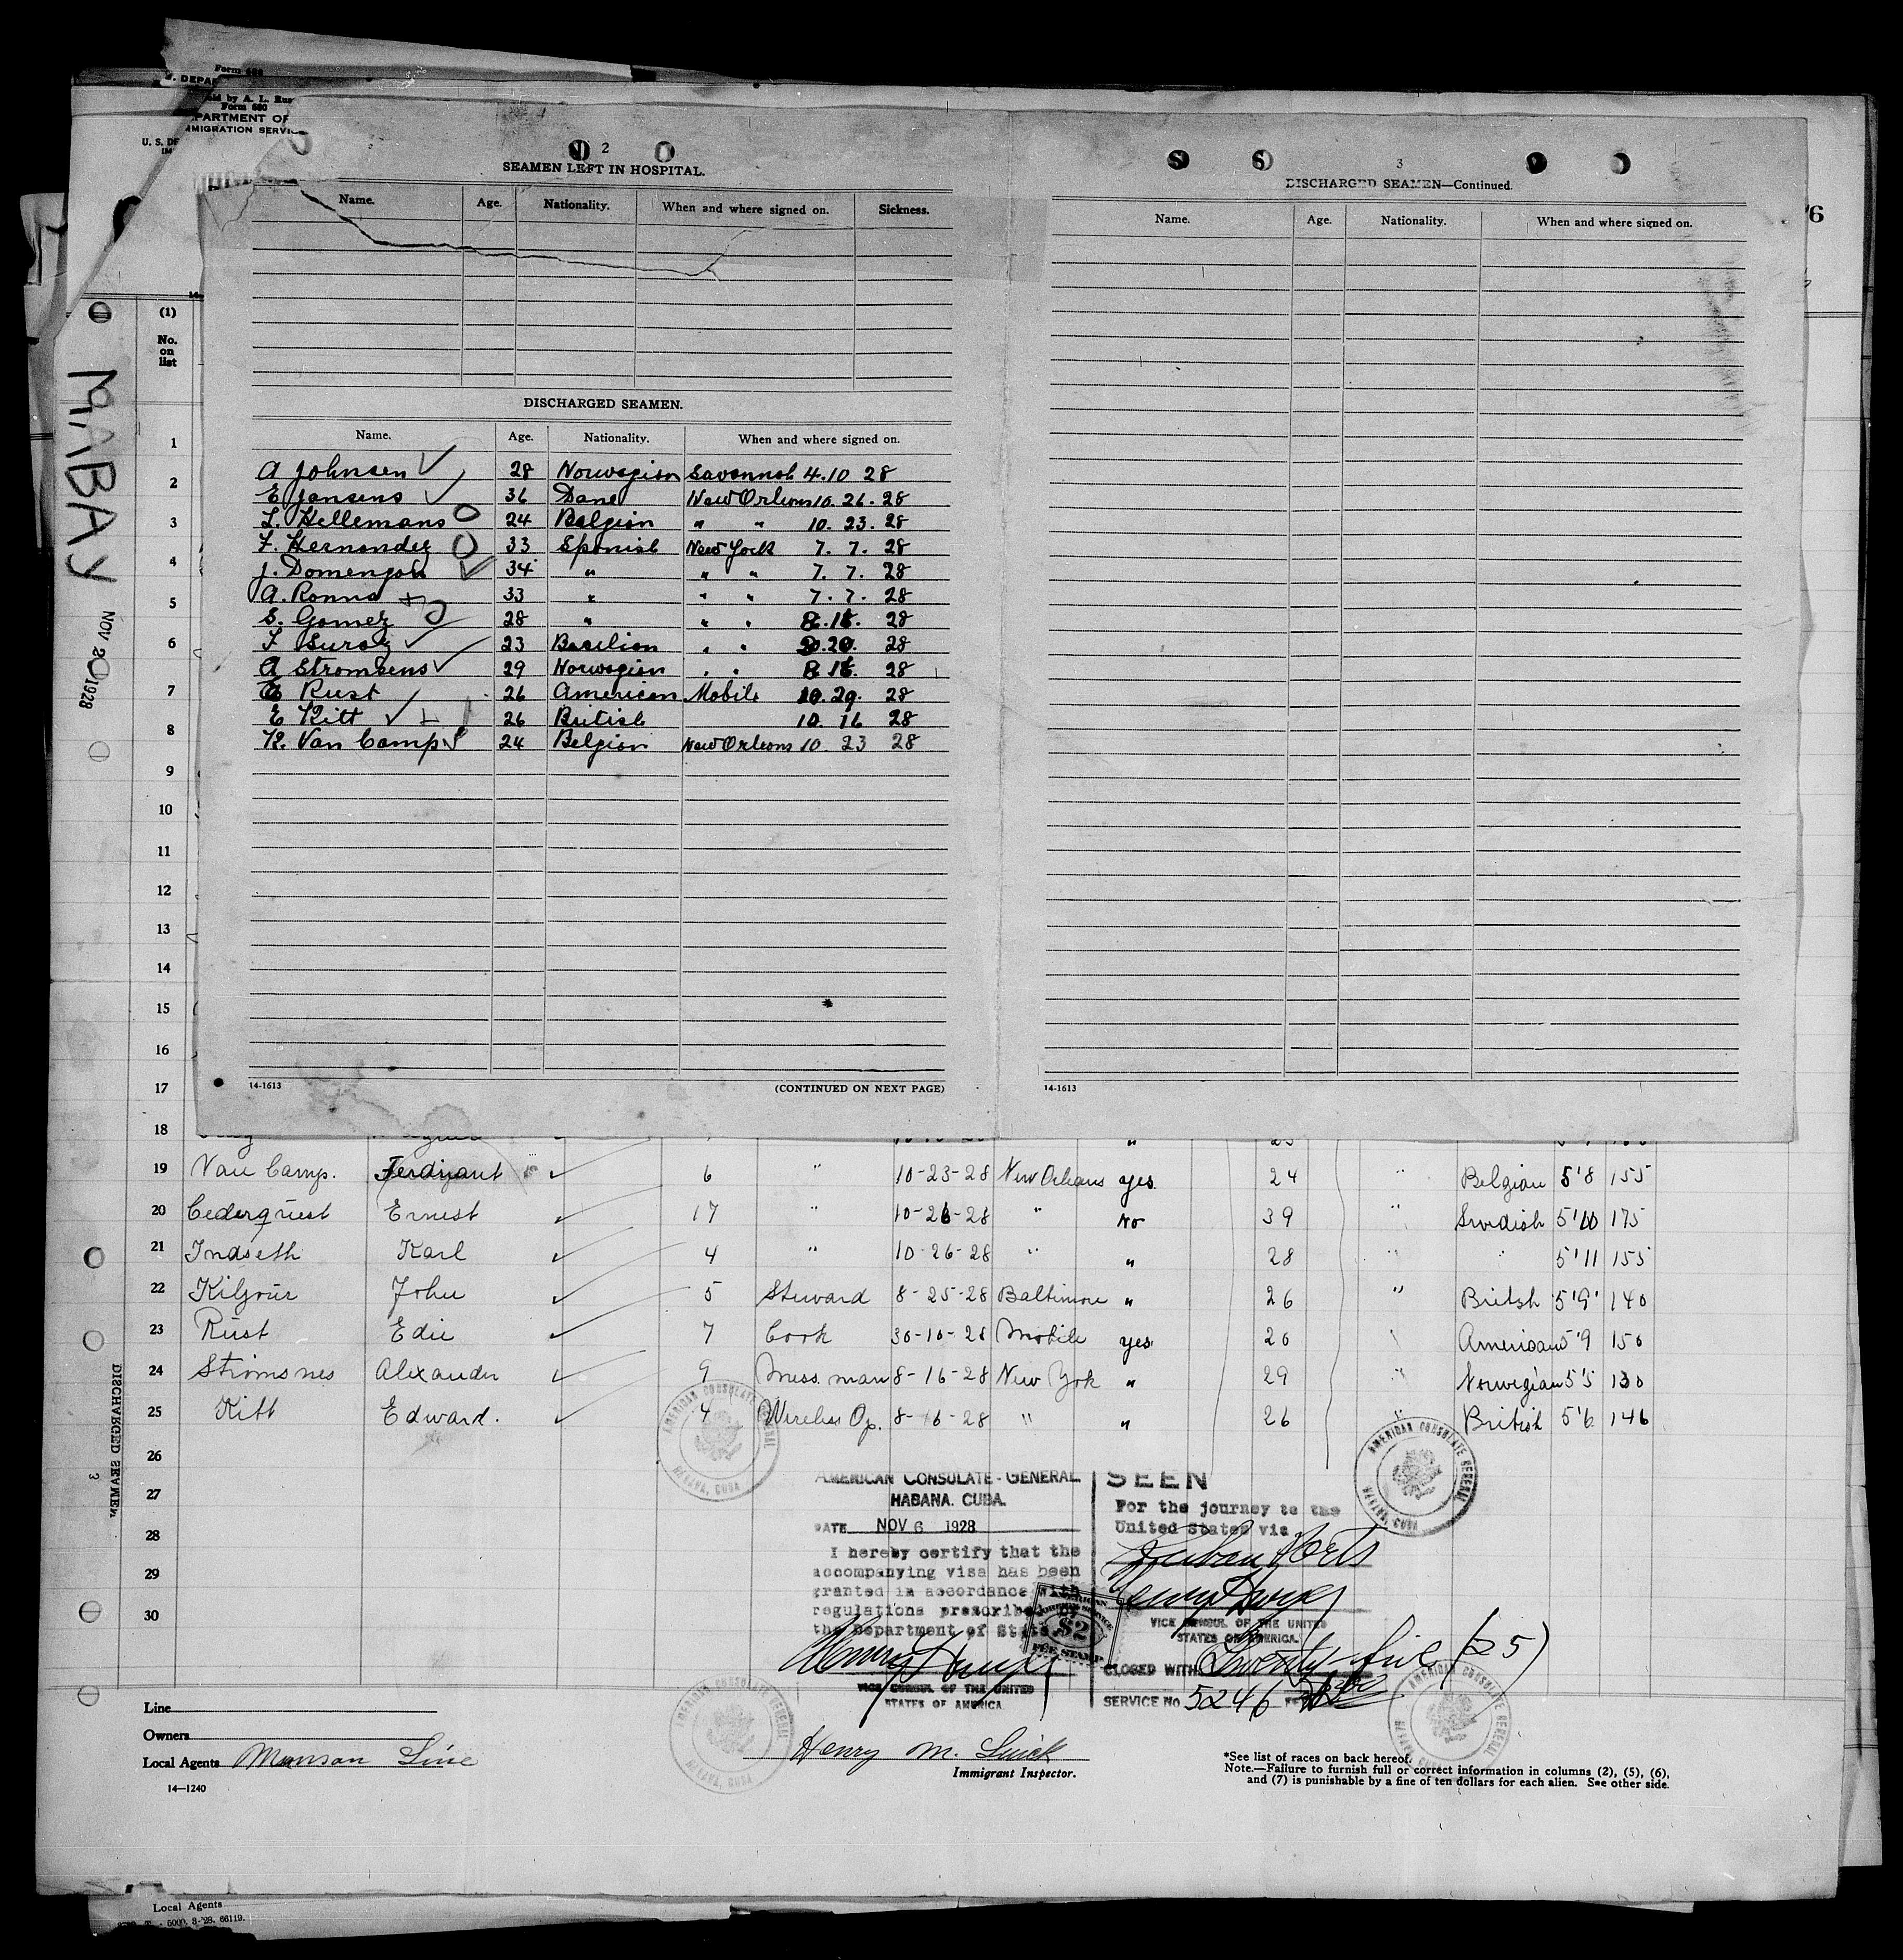 Form 680
DEPARTMENT OF
IMMIGRATION SERVICE
2
SEAMEN LEFT IN HOSPITAL.
Name. Age. Nationality. When and where signed on. Sickness.
DISCHARGED SEAMEN.
Name. Age. Nationality. When and where signed on.
A Johnsen 28 Norwegian Savannah 4.10 28
E Jansens 36 Dane New Orleans 10. 26. 28
L. Hellemans 24 Belgian " " 10. 23. 28
F. Hernandez 33 Spanish New York 7. 7. 28
J. 34 " " " 7. 7. 28
A. 33 " " " 7. 7. 28
S. Gomez 28 " " " 8. 28
F 23 " " 28
A Stromsens 29 Norwegian " " 8 28
E Rust 26 American Mobile 10. 29. 28
E Kitt 26 British 10. 16 28
Van Camp 24 Belgian New Orleans 10. 23 28
14-1613 (CONTINUED ON NEXT PAGE)
3
DISCHARGED SEAMEN—Continued.
Name. Age. Nationality. When and where signed on.
14-1613
MABAY
NOV 20 1928
(1)
No.
on
list
1
2
3
4
5
6
7
8
9
10
11
12
13
14
15
16
17
18
19 Van Camp. Ferdinant 6 " 10-23-28 New Orleans yes 24 " Belgian 5'8 155
20 Cederquest Ernest 17 " 10-26-28 " No 39 " Swedish 5'10 175
21 Indseth Karl 4 " 10-26-28 " " 28 " " 5'11 155
22 Kilgour John 5 Steward 8-25-28 Baltimore " 26 " British 5'9 140
23 Rust Edie 7 Cook 30-10-28 Mobile yes 26 " American 5'9 150
24 Strömsnes Alexander 9 Mess. man 8-16-28 New York " 29 " Norwegian 5'5 130
25 Kitt Edward. 4 Wireless Op. 8-16-28 " " 26 " British 5'6 146
26
27
28
29
30
DISCHARGED SEAMEN.
3
AMERICAN CONSULATE-GENERAL
HABANA. CUBA.
DATE NOV 6 1928
I hereby certify that the
accompanying visa has been
granted in accordance with
regulations prescribed by
the Department of State.
VICE CONSUL OF THE UNITED
STATES OF AMERICA
SEEN
For the journey to the
United States via
Cuban Ports
VICE CONSUL OF THE UNITED
STATES OF AMERICA.
CLOSED WITH Twenty-five (25)
SERVICE NO 5246
AMERICAN CONSULATE GENERAL
HABANA, CUBA
AMERICAN
FOREIGN SERVICE
$2
FEE STAMP
Line
Owners
Local Agents Munson Line
14—1240
Henry M.
Immigrant Inspector.
*See list of races on back hereof.
Note.—Failure to furnish full or correct information in columns (2), (5), (6),
and (7) is punishable by a fine of ten dollars for each alien. See other side.
Local Agents
5000. 3-'28. 66119.